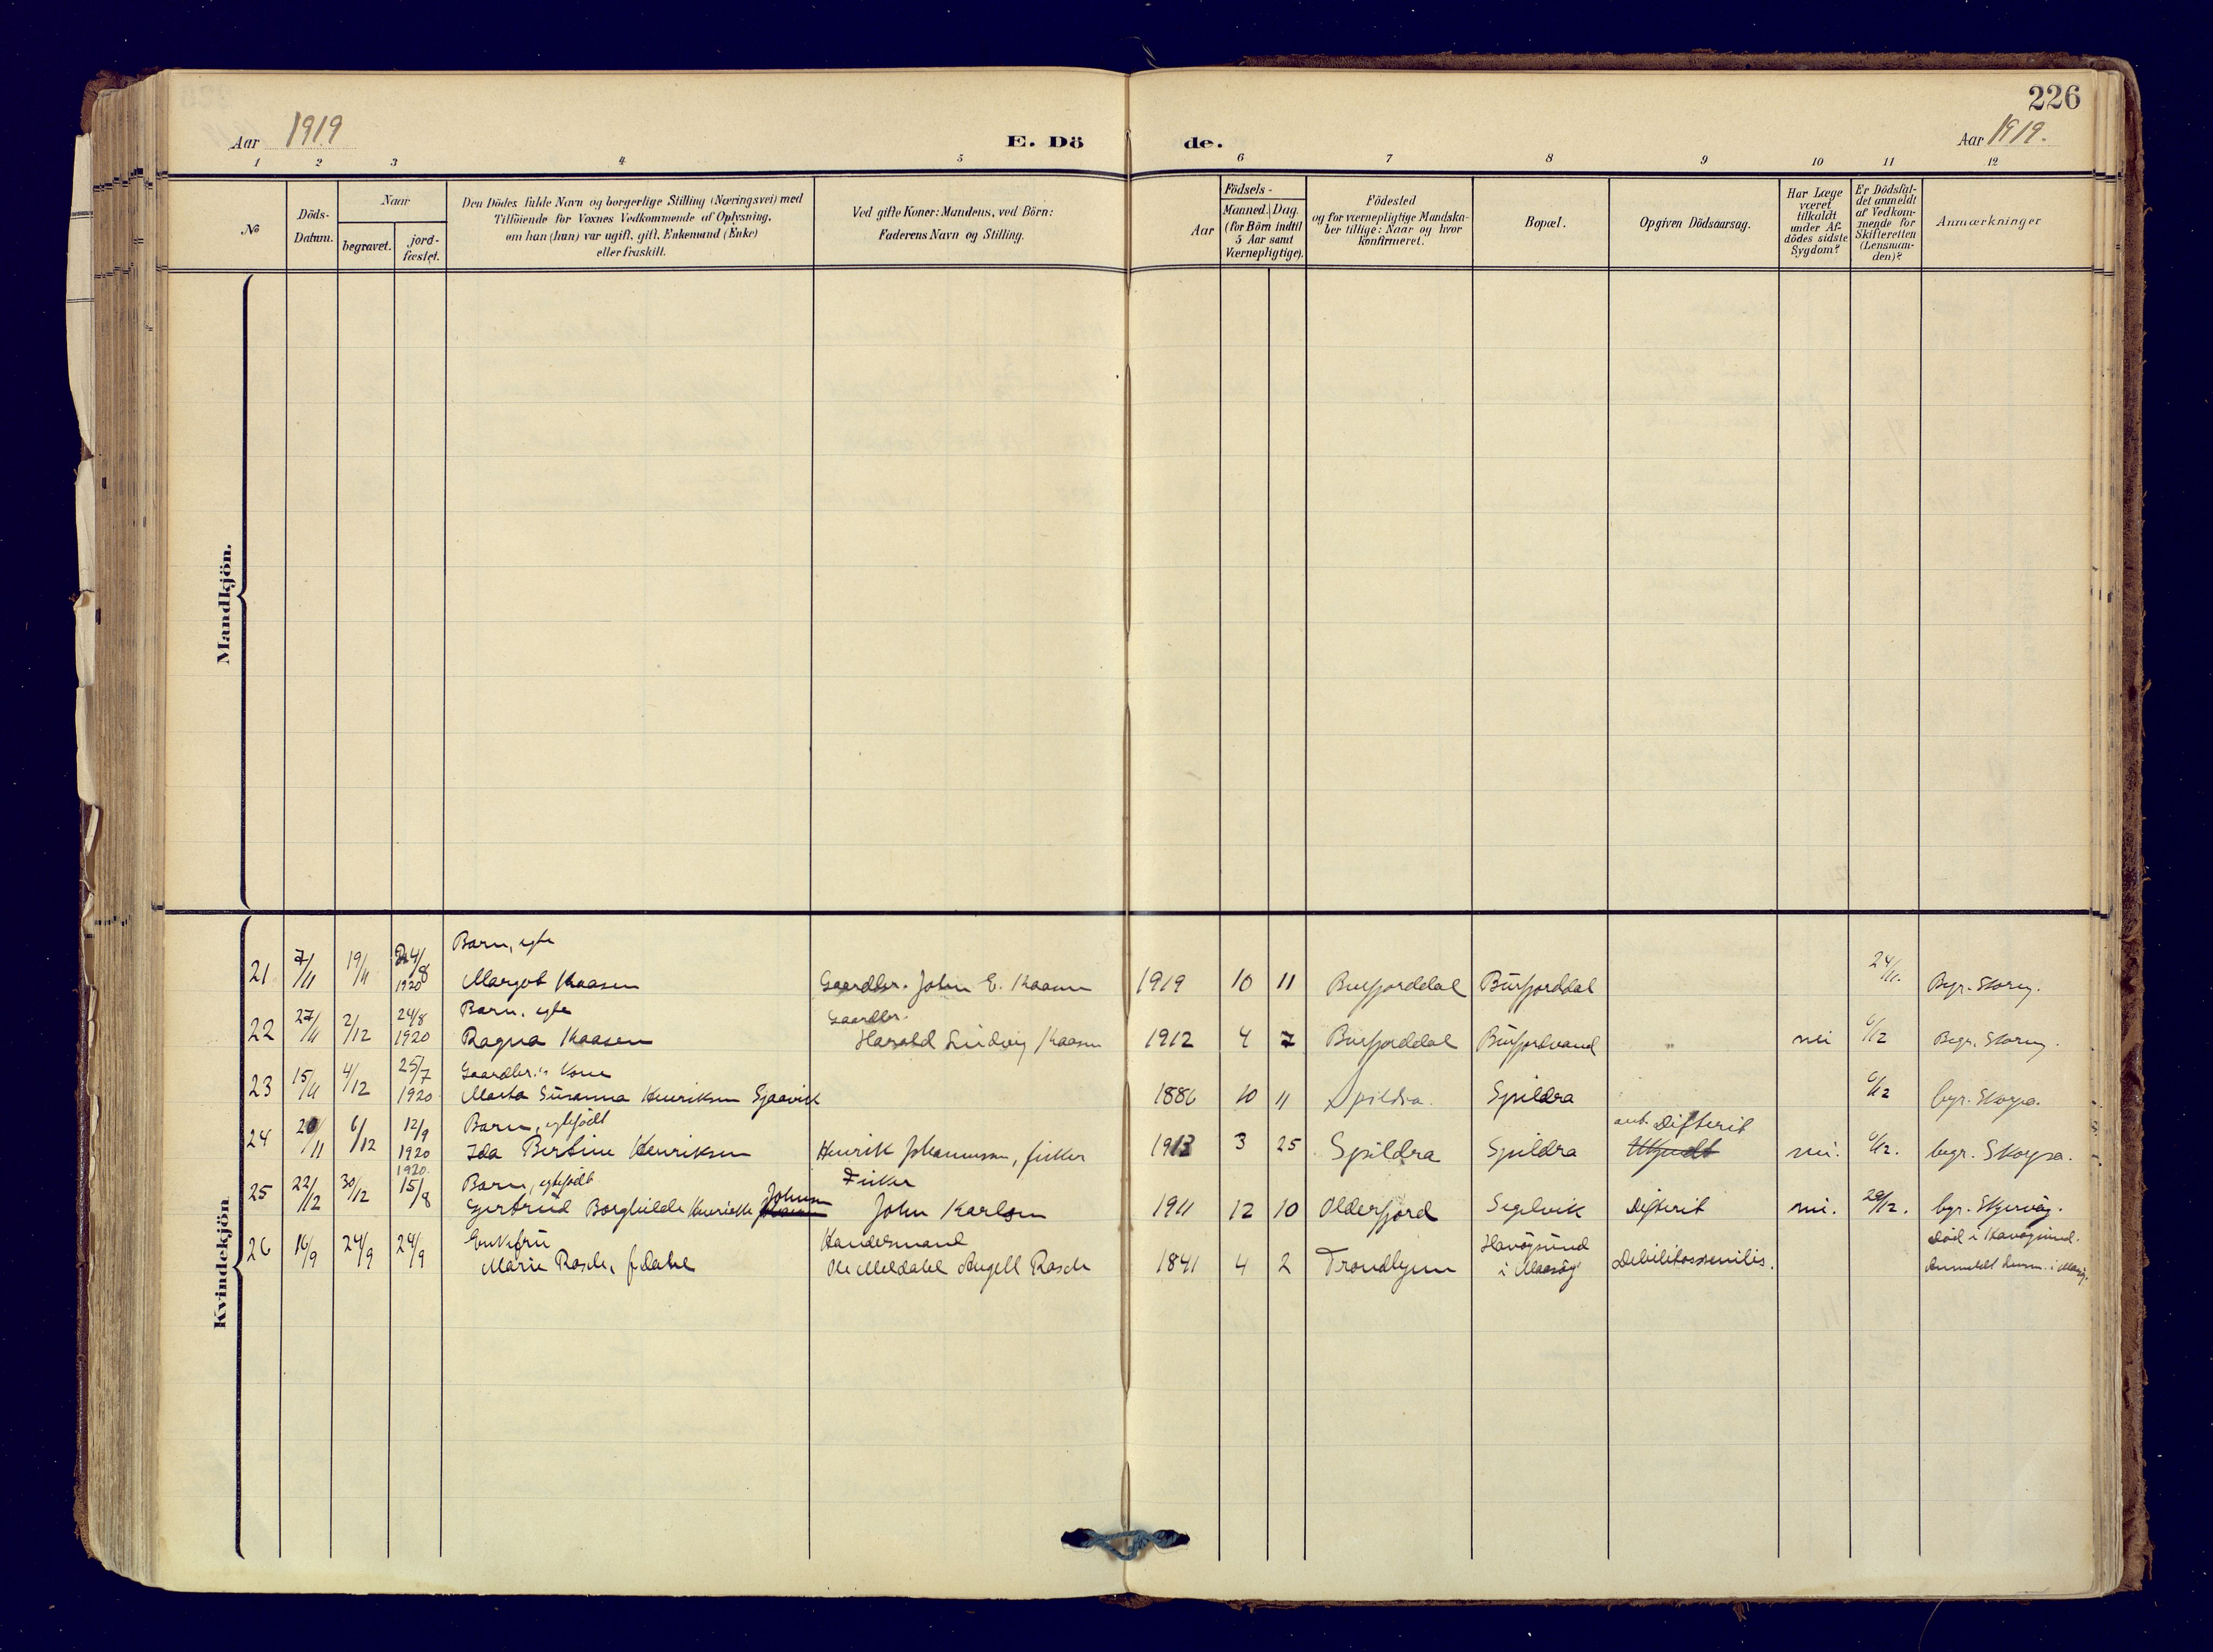 226
Aar 1919
E. Dö
de.
Aar 1919.
1 2 3 4 5 6 7 8 9 10 11 12
No
Döds-
Datum.
Naar
begravet.
jord-
fæstet.
Den Dödes fulde Navn og borgerlige Stilling (Næringsvei) med
Tilföiende for Voxnes Vedkommende af Oplysning,
om han (hun) var ugift, gift, Enkemand (Enke)
eller fraskilt.
Ved gifte Koner: Mandens, ved Börn:
Faderens Navn og Stilling.
Födsels-
Aar
Maaned. Dag.
(for Börn indtil
5 Aar samt
Værnepligtige).
Födested
og for værnepligtige Mandska-
ber tillige: Naar og hvor
konfirmeret.
Bopæl.
Opgiven Dödsaarsag.
Har Læge
været
tilkaldt
under Af-
dödes sidste
Sygdom?
Er Dödsfal-
det anmeldt
af Vedkom-
mende for
Skifteretten
(Lensman-
den)?
Anmærkninger
Mandkjön.
Kvindekjön
Barn, egte
21 7/11 19/11 24/8 1920 Margot Kaasen Gaardbr. John E. Kaasen 1919 10 11 Burfjorddal Burfjorddal 24/11. Begr.
Barn, egte Gaardbr.
22 27/11 2/12 24/8 1920 Ragna Kaasen Harald Ludvig Kaasen 1912 4 7 Burfjorddal Burfjordvand nei 6/12 Begr.
Gaardbr.s Kone
23 15/11 4/12 25/7 1920 Marta Susanna Henriksen Sjaavik 1886 10 11 Spildra. Spildra 6/12 begr. Skorpa.
Barn, egtefödt ant. Difterit
24 20/11 6/12 12/9 1920 Ida Bertine Henriksen Henrik Johannessen, fisker 1913 3 25 Spildra Spildra Ukjendt nei. 6/12. begr. Skorpa.
Barn, egtefödt Johnsen Fisker
25 22/12 30/12 1920 15/8 Gjertrud Borghilde Henriette John Karlsen 1911 12 10 Olderfjord Segelvik Difterit nei. 29/12. begr. Skjervöy.
Enkefru Handelsmand Havöysund Död i Havöysund.
26 16/9 24/9 24/9 Marie Rasch, f. Dahl Ole Meldahl Angell Rasch 1841 4 2 Trondhjem i Maasöy Debilitas senilis. Anmeldt Lensm. i Maasöy.